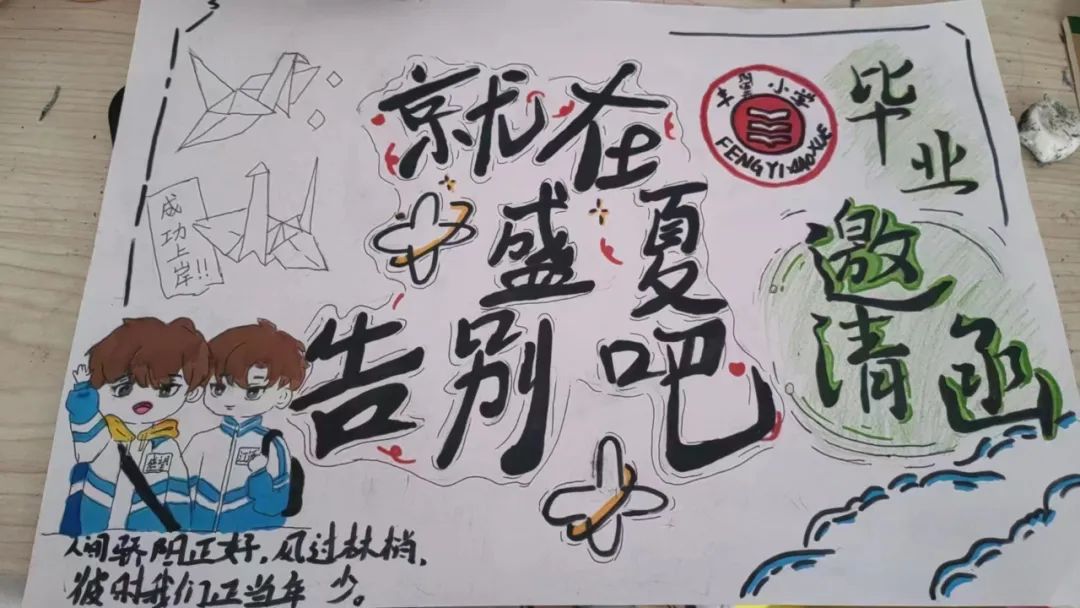 就在
盛夏
告别吧
小学
FENGYIXIAOXUE
毕业
邀清函
成功上岸!!
盛望
人间骄阳正好,风过林梢,
彼时我们正当年少。